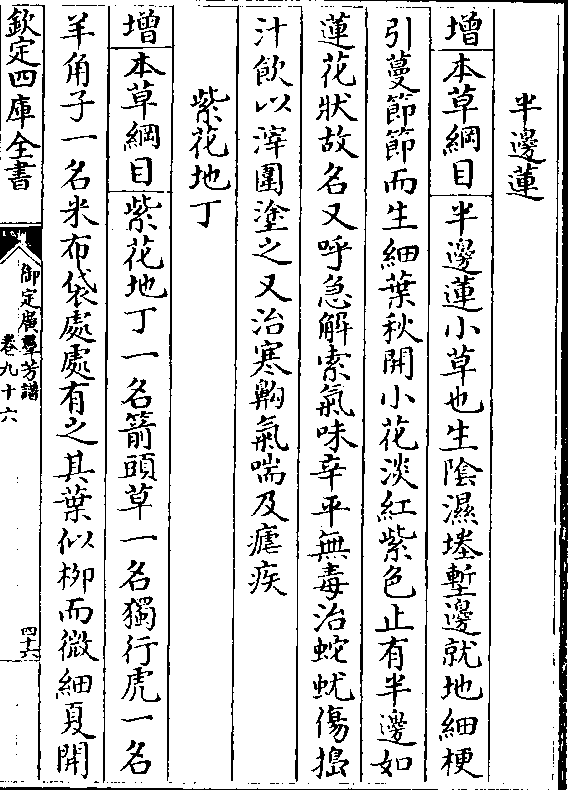 半邊蓮
增本草綱目半邊蓮小草也生陰濕塍塹邊就地細梗
引蔓節節而生細葉秋開小花淡紅紫色止有半邊如
蓮花狀故名又呼急解索氣味辛平無毒治蛇蚘傷搗
汁飲以滓圍塗之又治寒齁氣喘及瘧疾
紫花地丁
增本草綱目紫花地丁一名箭頭草一名獨行虎一名
羊角子一名米布袋處處有之其葉似柳而微細夏開
欽定四庫全書
御定廣羣芳譜
卷九十六